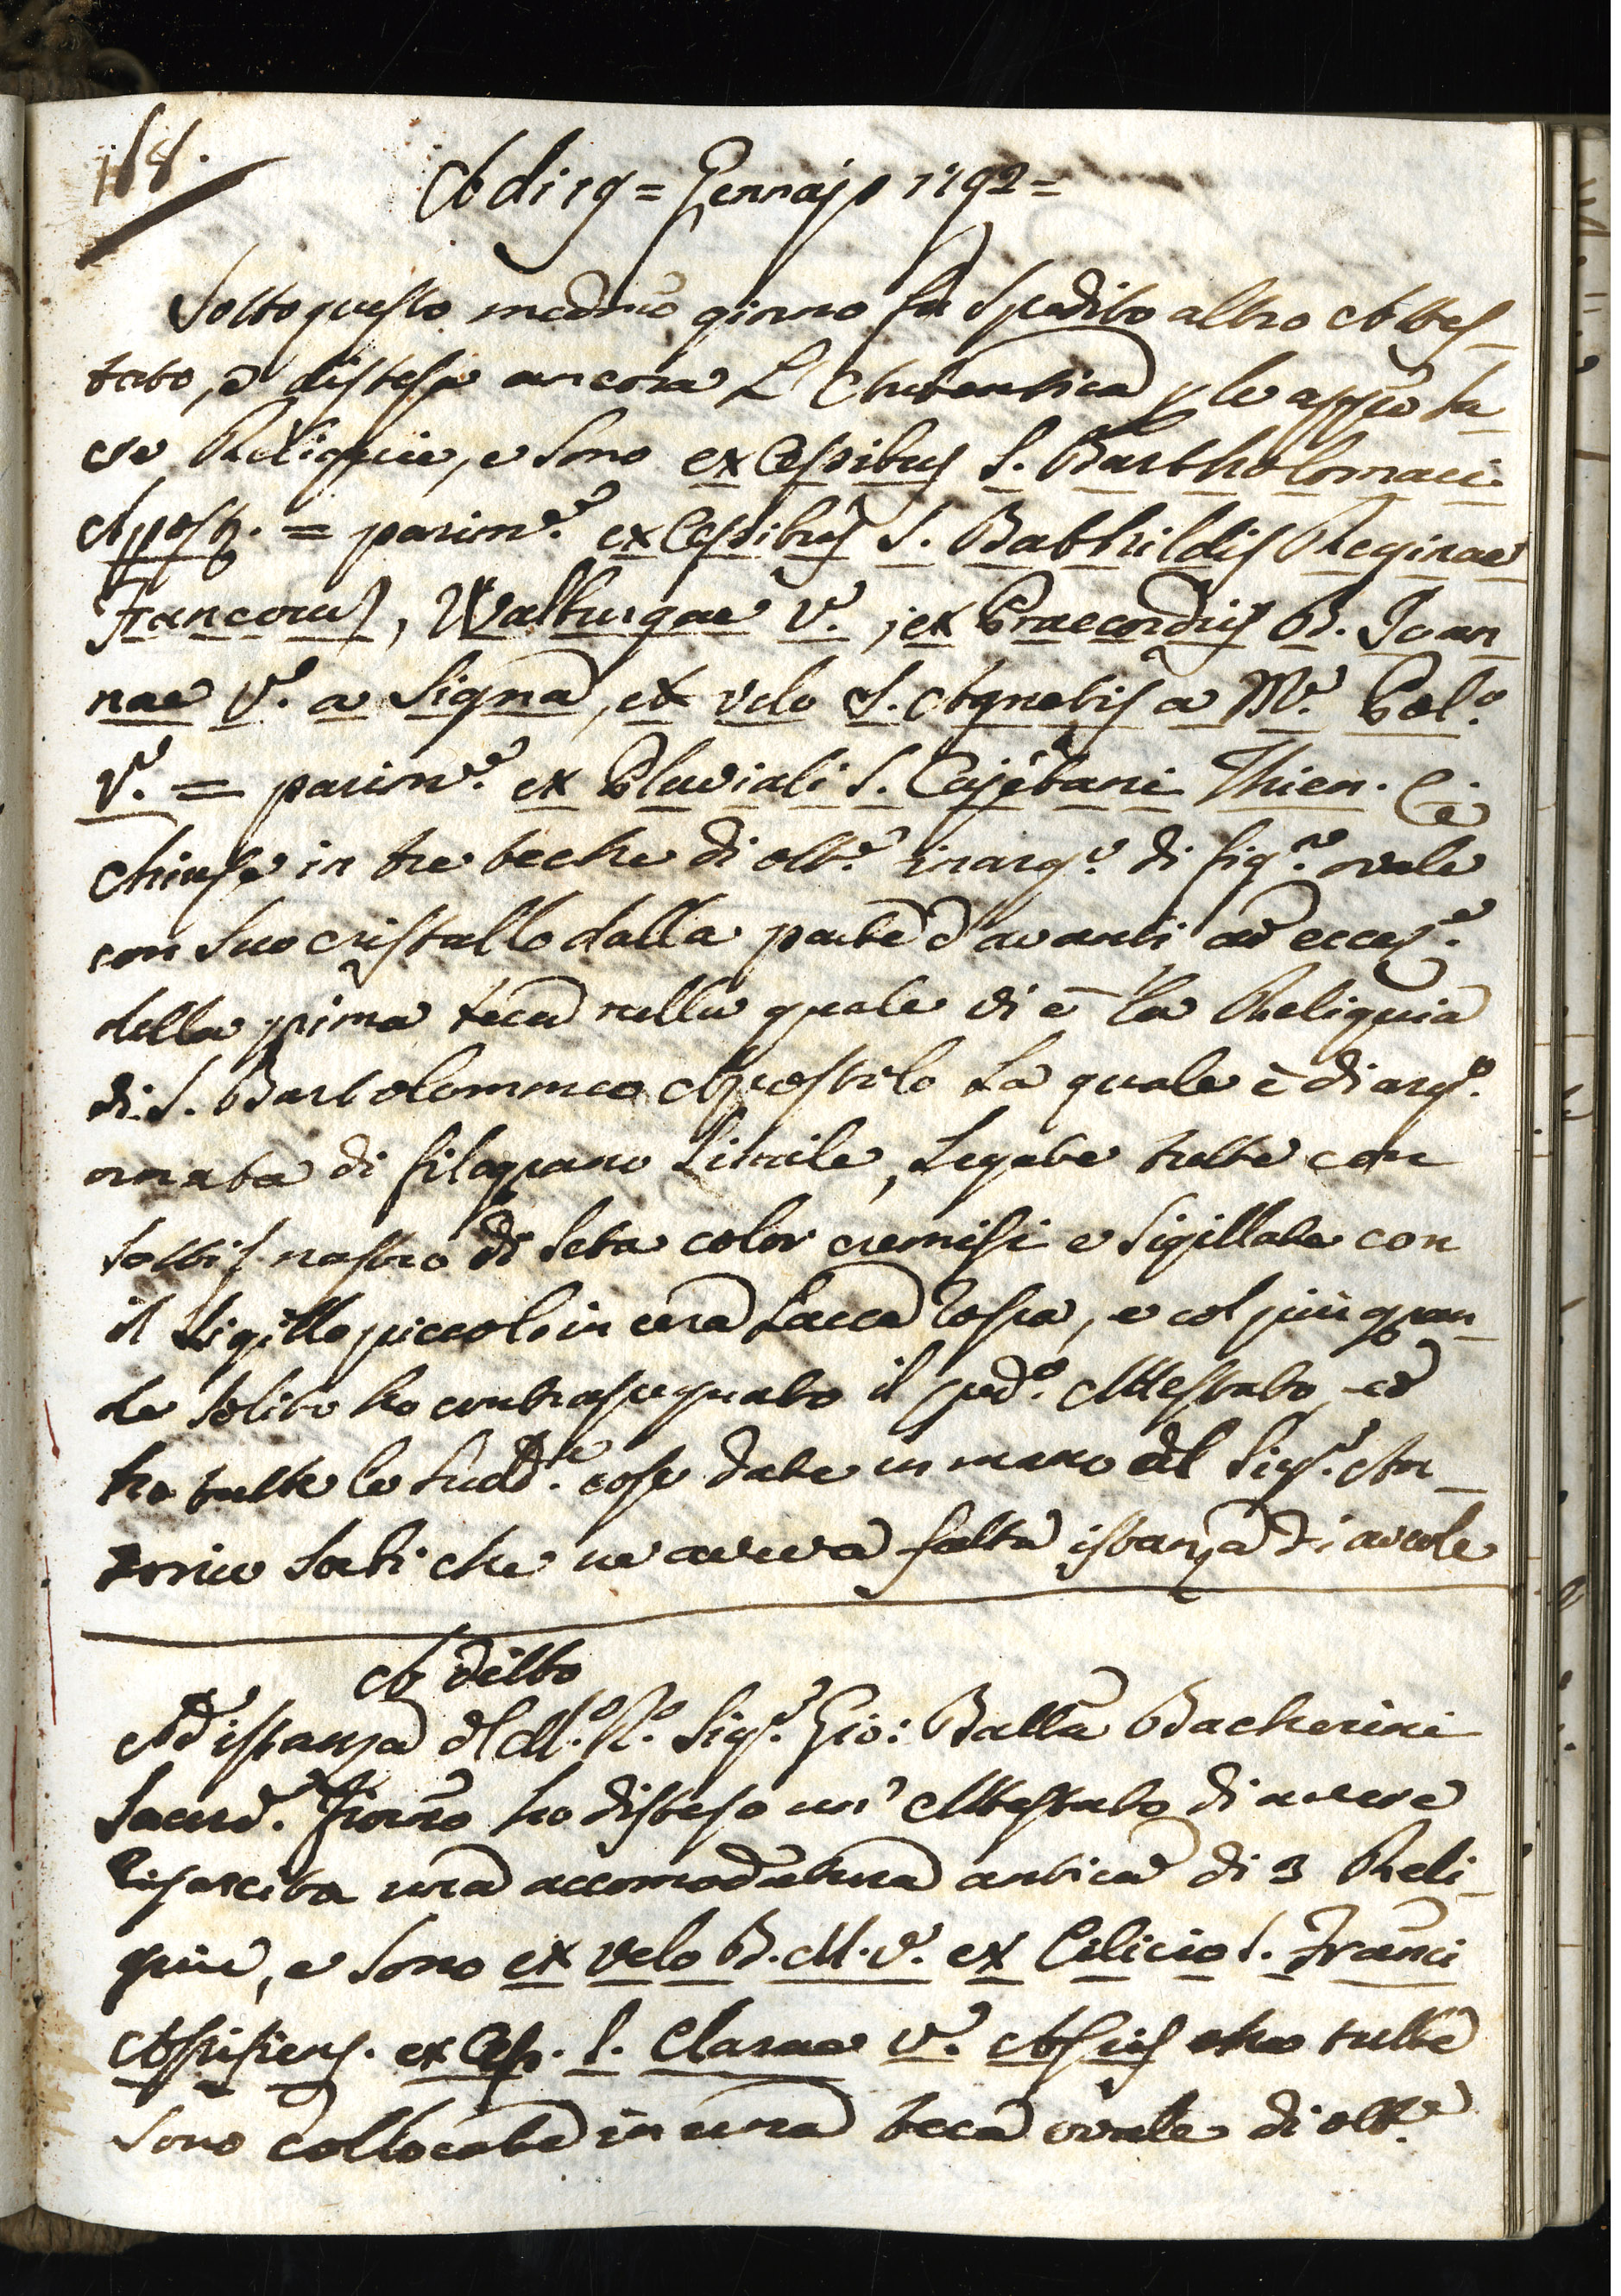 168.
A di 19 = Gennajo 1792 =
Sotto questo medmo giorno fu spedito altro Attes-
tato, e distesa ancora L'Autentica p le appo sa-
cre Reliquie, e sono ex Ossibus S. Bartholomaei
Apost. = parime. ex Ossibus S. Bathildis Reginae
Francorum, Walburgae V. ; ex Praecordiis B. Joan
nae V. a Signa, ex velo S. Agnetis a M. Pol.o
V. = parime. ex Pluviali S. Cajetani Thien. C.
chiuse in tre teche di otte. inarge. di fige. ovale
con suo cristallo dalla parte d'avanti ad ecceze.
della prima teca nella quale vi è la Reliquia
di S. Bartolommeo Apostolo La quale è di argo.
ornata di filograno simile, Legate tutte con
sottil nastro di seta color cremisi e sigillate con
il sigillo piccolo in cera Lacca rossa, e col più gran-
de solito ho contrassegnato il pedo. Attestato, ed
ho tutte le sudde. cose date in mano del Sige. An-
tonio Sati che ne aveva fatta istanza di averle
A detto
Ad istanza del M.o R.o Sige. Gio: Batta Bacherini
Sacerd. Fiorno ho disteso un' Attestato di avere
risarcita una accomodatura antica di 3 Reli-
quie, e sono ex velo B. M. V. ex Cilicio S. Franci
Assisiens. ex Oss. S. Clarae V. Assis che tutte
sono collocate in una teca ovale di otte.